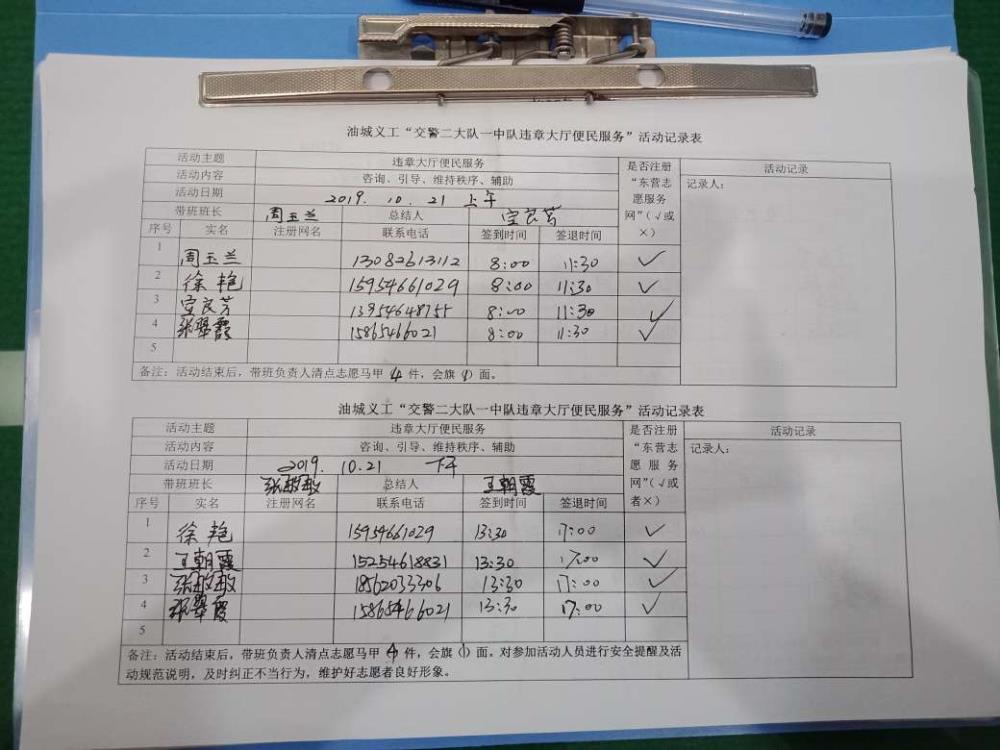 油城义工“交警二大队一中队违章大厅便民服务”活动记录表
活动主题 违章大厅便民服务 是否注册“东营志愿服务网”(√或×) 活动记录
活动内容 咨询、引导、维持秩序、辅助 记录人:
活动日期 2019. 10. 21 上午
带班班长 周玉兰 总结人 良芳
序号 实名 注册网名 联系电话 签到时间 签退时间
1 周玉兰 13082613112 8:00 11:30 √
2 徐艳 15954661029 8:00 11:30 √
3 良芳 13954648755 8:00 11:30 √
4 张翠霞 15865466021 8:00 11:30 √
5
备注:活动结束后,带班负责人清点志愿马甲 4 件,会旗 1 面。
油城义工“交警二大队一中队违章大厅便民服务”活动记录表
活动主题 违章大厅便民服务 是否注册“东营志愿服务网”(√或者×) 活动记录
活动内容 咨询、引导、维持秩序、辅助 记录人:
活动日期 2019. 10.21 下午
带班班长 张敏敏 总结人 王朝霞
序号 实名 注册网名 联系电话 签到时间 签退时间
1 徐艳 15954661029 13:30 17:00 √
2 王朝霞 15254618831 13:30 17:00 √
3 张敏敏 18562033306 13:30 17:00 √
4 张翠霞 15865466021 13:30 17:00 √
5
备注:活动结束后,带班负责人清点志愿马甲 4 件,会旗 1 面。对参加活动人员进行安全提醒及活
动规范说明,及时纠正不当行为,维护好志愿者良好形象。